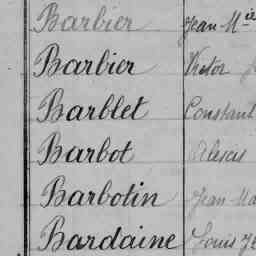 Barbier Jean-Mie
Barbier Victor
Barblet Constant
Barbot Alexis
Barbotin Jean Ma
Bardaine Louis